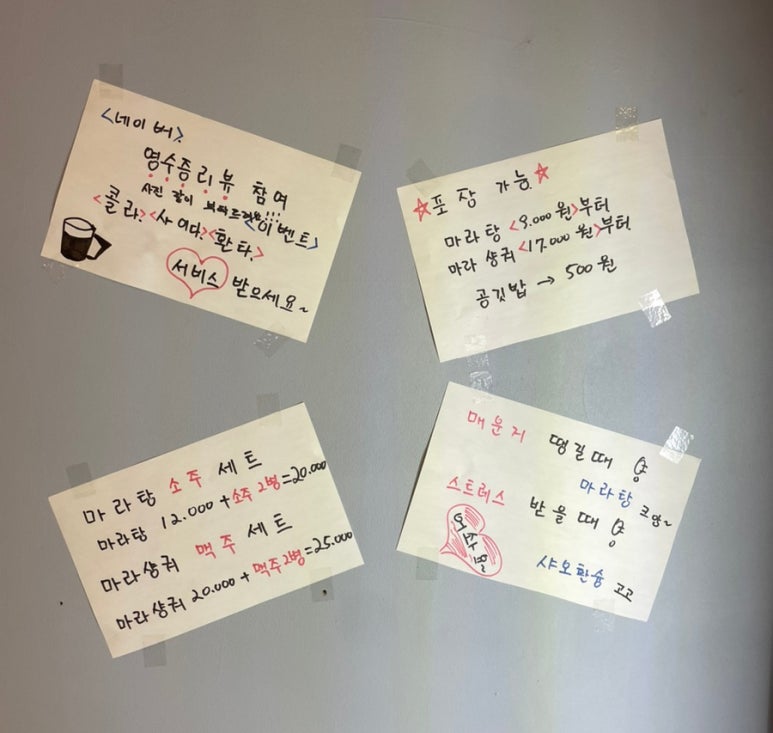 <네이버>
영수증리뷰 참여
사진 같이
<이벤트>
<콜라?<사이다?<환타>
서비스 받으세요~
☆포장 가능☆
마라탕 <9.000원>부터
마라샹궈 <17.000원>부터
공깃밥 → 500원
마라탕 소주 세트
마라탕 12.000+소주2병=20.000
마라샹궈 맥주 세트
마라샹궈 20.000+맥주2병=25.000
매운거 땡길때
마라탕
스트레스 받을때
샤오환슝 고고